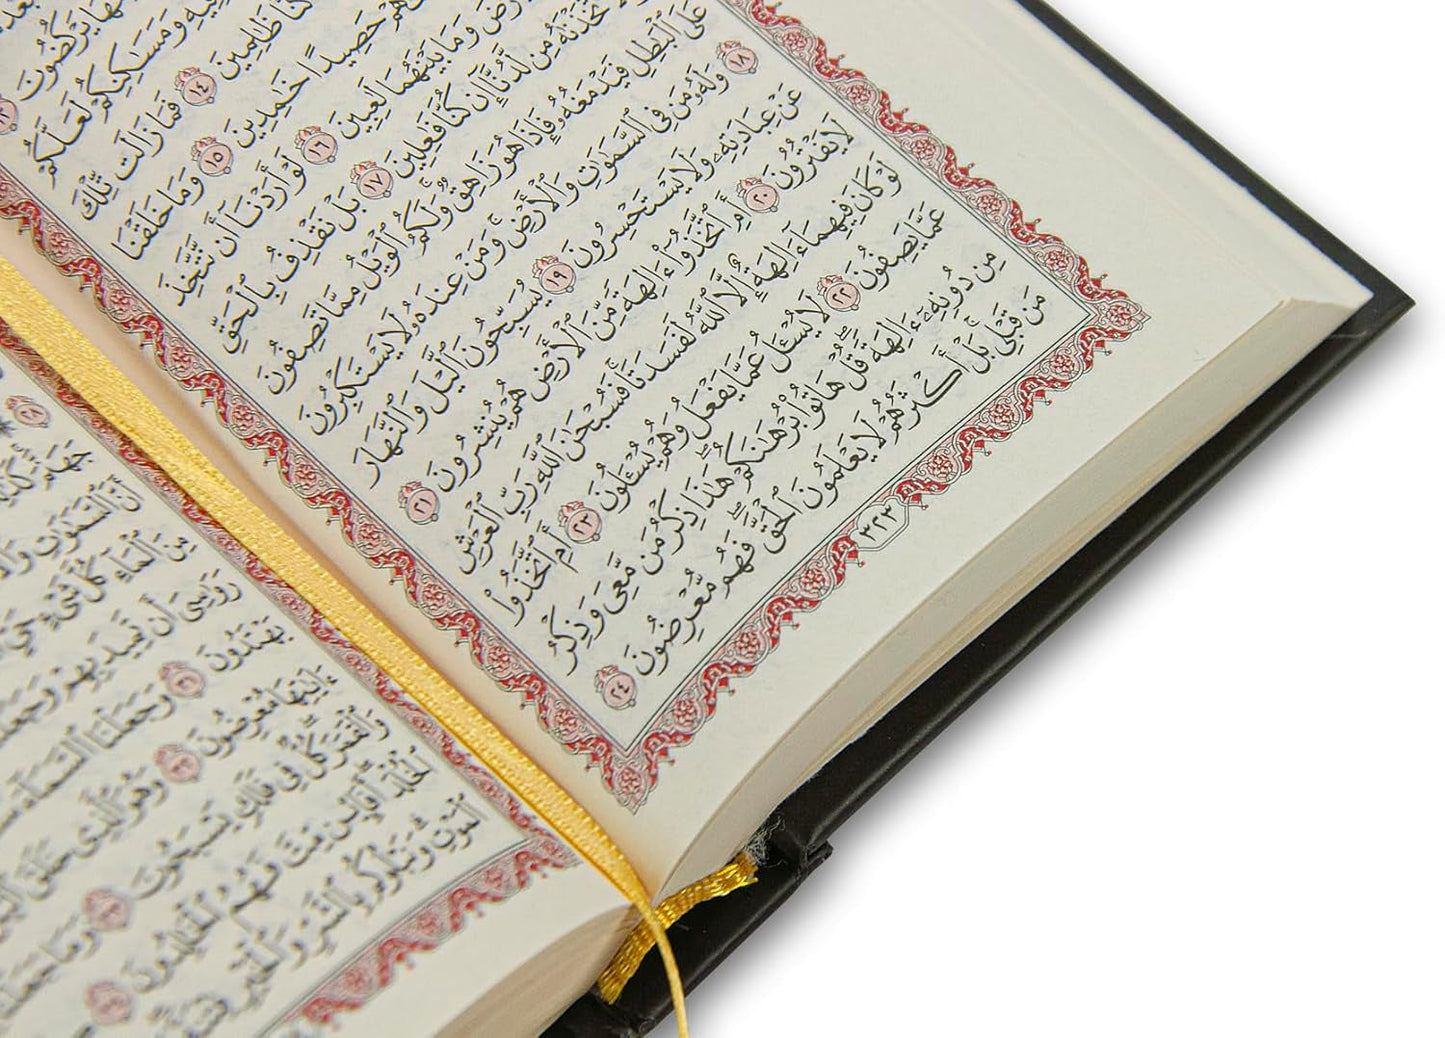 بَعْدَ
مِّنْهَا يَرْكُضُونَ
١٢ فِيهِ وَمَسَٰكِنِكُمْ لَعَلَّكُمْ
كُنَّا ظَٰلِمِينَ ١٤ فَمَا زَالَت تِّلْكَ
هُمْ حَصِيدًا خَٰمِدِينَ ١٥ وَمَا خَلَقْنَا
رْضَ وَمَا بَيْنَهُمَا لَٰعِبِينَ ١٦ لَوْ أَرَدْنَآ أَن نَّتَّخِذَ
لَّٱتَّخَذْنَٰهُ مِن لَّدُنَّآ إِن كُنَّا فَٰعِلِينَ ١٧ بَلْ نَقْذِفُ بِٱلْحَقِّ
عَلَى ٱلْبَٰطِلِ فَيَدْمَغُهُۥ فَإِذَا هُوَ زَاهِقٌ ۚ وَلَكُمُ ٱلْوَيْلُ مِمَّا تَصِفُونَ
١٨ وَلَهُۥ مَن فِى ٱلسَّمَٰوَٰتِ وَٱلْأَرْضِ ۚ وَمَنْ عِندَهُۥ لَا يَسْتَكْبِرُونَ
عَنْ عِبَادَتِهِۦ وَلَا يَسْتَحْسِرُونَ ١٩ يُسَبِّحُونَ ٱلَّيْلَ وَٱلنَّهَارَ
لَا يَفْتُرُونَ ٢٠ أَمِ ٱتَّخَذُوٓا۟ ءَالِهَةً مِّنَ ٱلْأَرْضِ هُمْ يُنشِرُونَ ٢١
لَوْ كَانَ فِيهِمَآ ءَالِهَةٌ إِلَّا ٱللَّهُ لَفَسَدَتَا ۚ فَسُبْحَٰنَ ٱللَّهِ رَبِّ ٱلْعَرْشِ
عَمَّا يَصِفُونَ ٢٢ لَا يُسْـَٔلُ عَمَّا يَفْعَلُ وَهُمْ يُسْـَٔلُونَ ٢٣ أَمِ ٱتَّخَذُوا۟
مِن دُونِهِۦٓ ءَالِهَةً ۖ قُلْ هَاتُوا۟ بُرْهَٰنَكُمْ ۖ هَٰذَا ذِكْرُ مَن مَّعِىَ وَذِكْرُ
مَن قَبْلِى ۗ بَلْ أَكْثَرُهُمْ لَا يَعْلَمُونَ ٱلْحَقَّ ۖ فَهُم مُّعْرِضُونَ ٢٤
٣٢٣
٢٨ ۞
جَهَنَّمَ ۚ كَذَٰ
أَنَّ ٱلسَّمَٰوَٰتِ وَٱلْ
مِنَ ٱلْمَآءِ كُلَّ شَىْءٍ حَىٍّ
رَوَٰسِىَ أَن تَمِيدَ بِهِمْ وَجَعَلْنَا
يَهْتَدُونَ ٣١ وَجَعَلْنَا ٱلسَّمَآءَ
ءَايَٰتِهَا مُعْرِضُونَ ٣٢ وَهُوَ ٱلَّذِى خَلَقَ
وَٱلْقَمَرَ ۖ كُلٌّ فِى فَلَكٍ يَسْبَحُونَ ٣٣ وَمَا جَعَلْنَا
ٱلْخُلْدَ ۖ أَفَإِي۟ن مِّتَّ فَهُمُ ٱلْخَٰلِدُونَ ٣٤
ٱلْمَوْتِ ۗ وَنَبْلُوكُم بِٱلشَّرِّ وَٱلْخَيْرِ فِتْنَةً